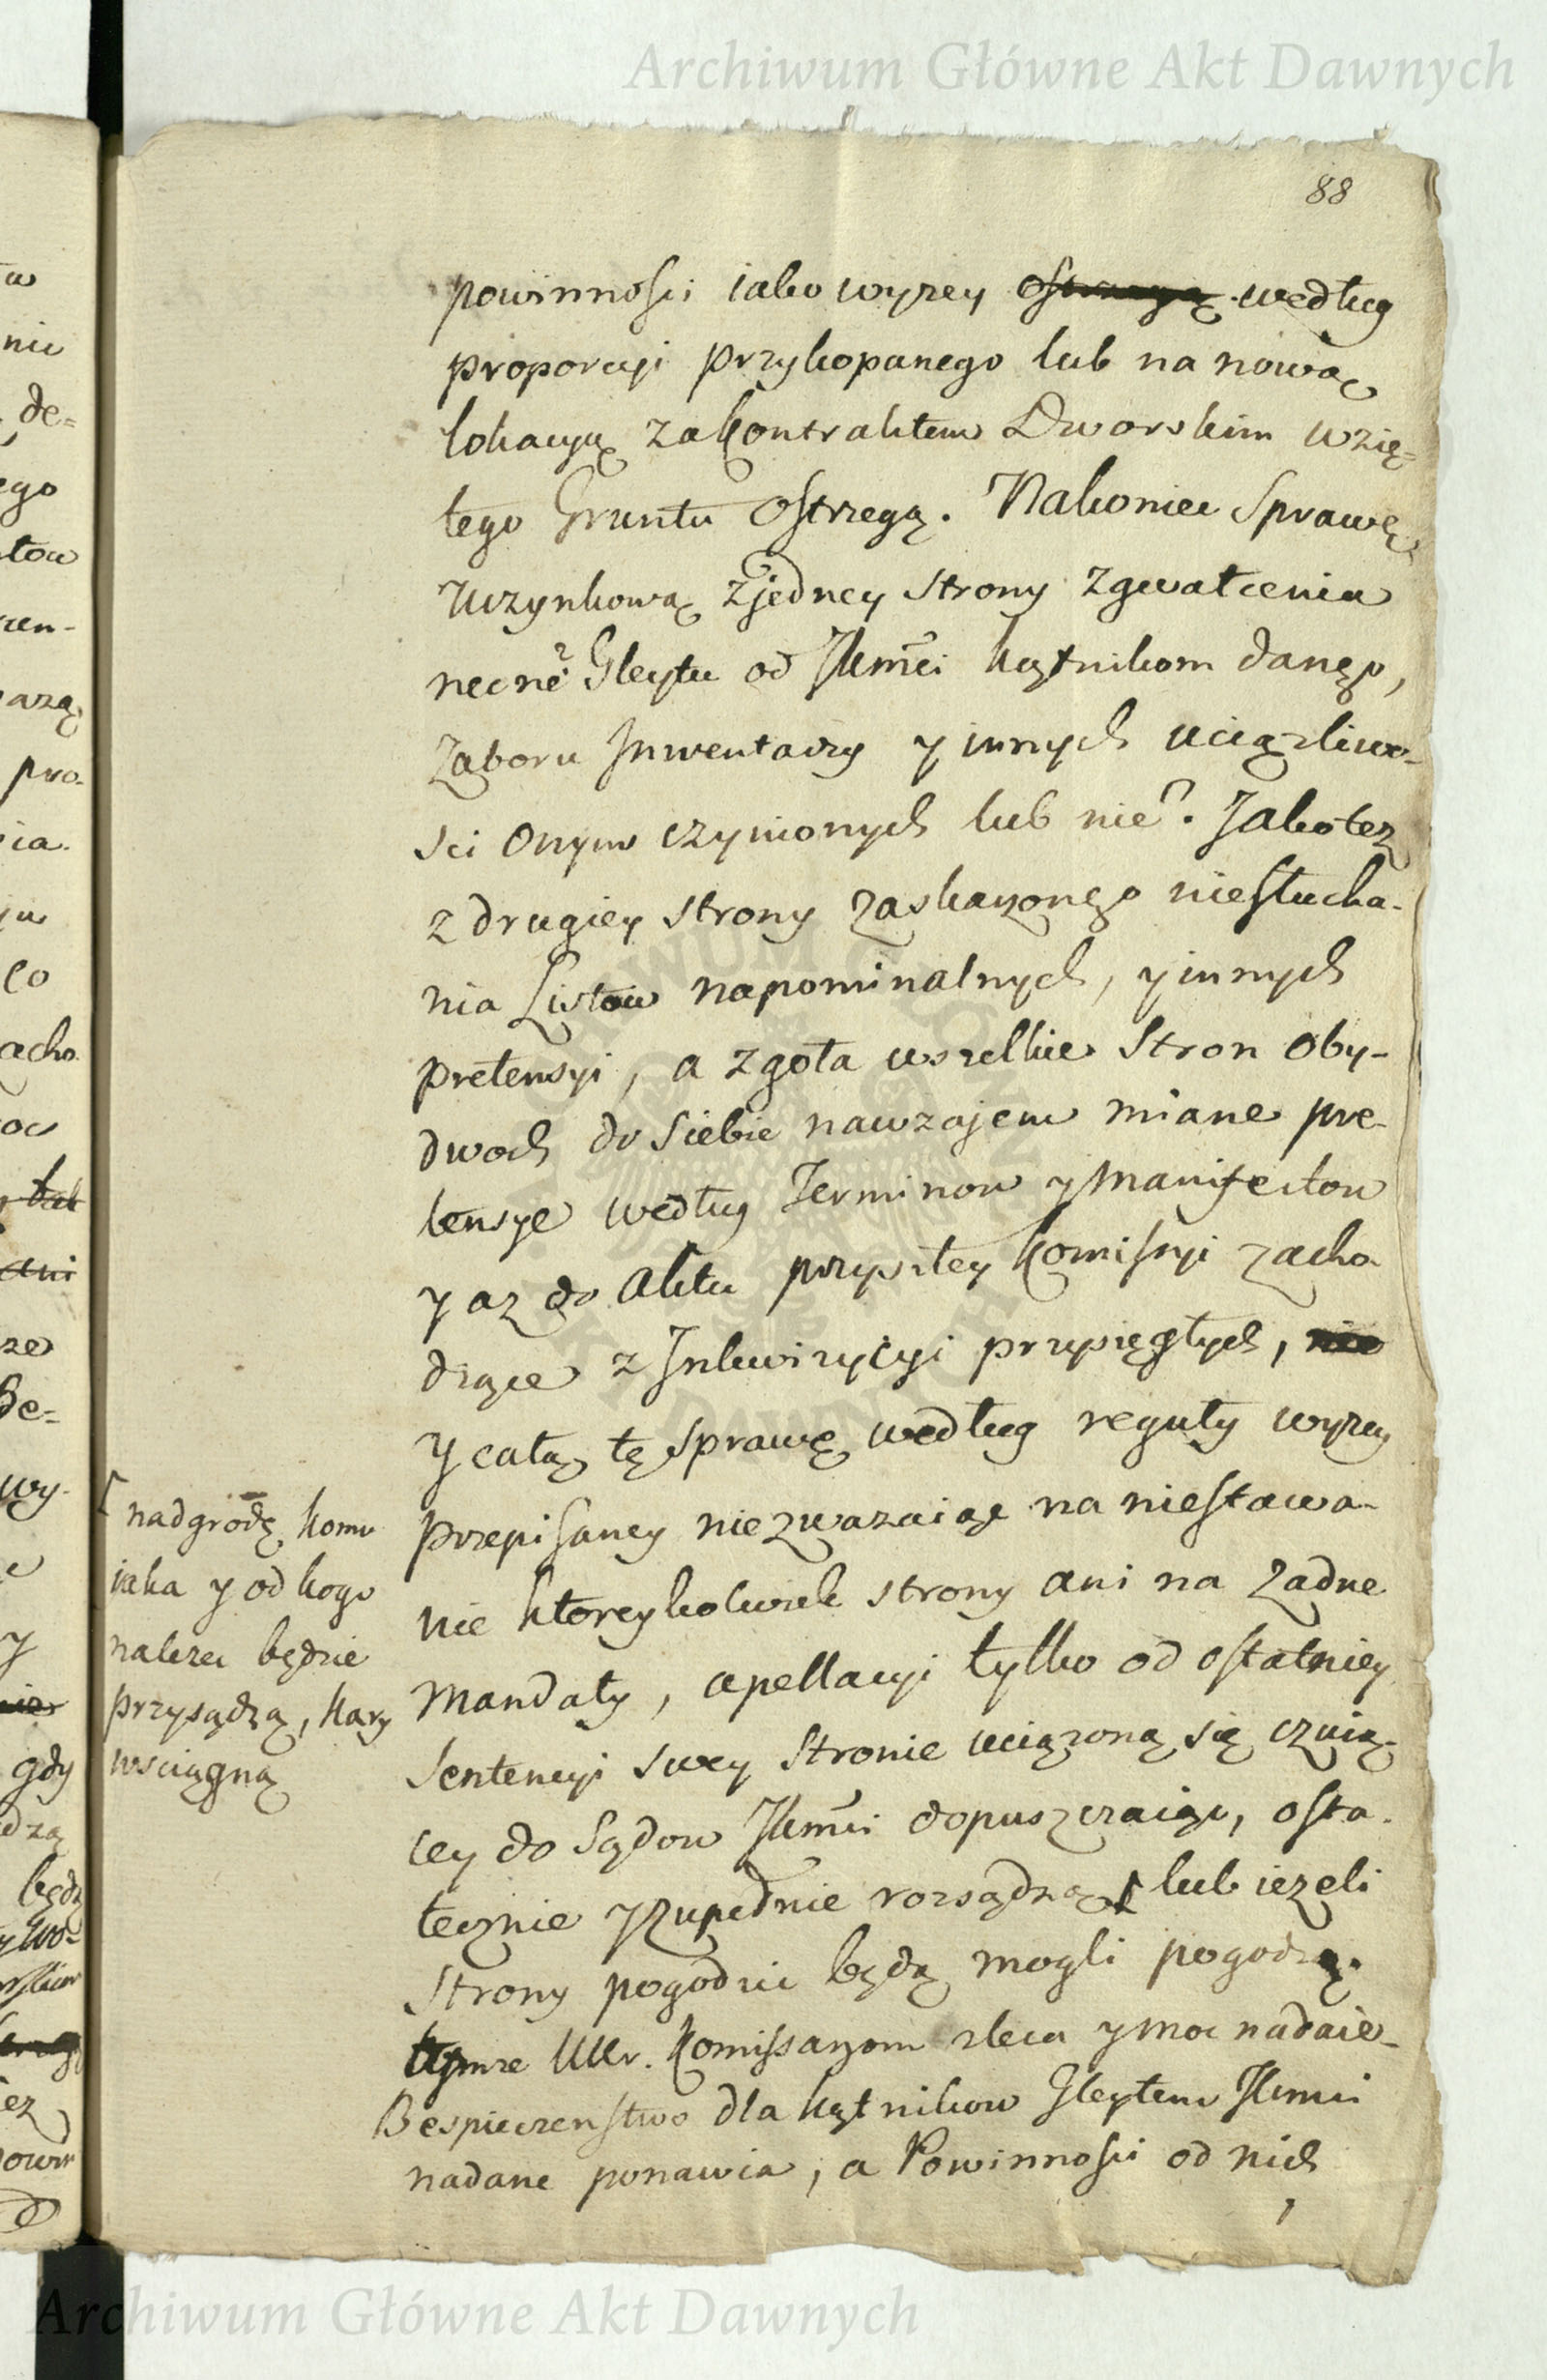 Archiwum Główne Akt Dawnych
88
powinnosci iako wyzey ostrzegą według
proporcyi przykopanego lub na nową
lokacyą za Kontraktem Dworskim wzię=
tego Gruntu ostrzegą. Nakoniec Sprawę
Uczynkową z jedney strony zgwałcenia
Gleytu od JKmci Kątnikom danego,
Zaboru Inwentarzy y innych uciązliwo-
sci onym czynionych lub nie? Jako tez
z drugiey strony zaskarzonego niesłucha-
nia Listow napominalnych, y innych
pretensyi, a zgoła wszelkie Stron oby-
dwoch do siebie nawzajem miane pre-
tensye według Terminow y Manifestow
y az do Aktu przyszłey Komissyi zacho
dzące z Inkwizycyi przysięgłych, nie
y całą tę sprawę według reguły wyzey
przepisaney niezwazaiąc na niestawa-
nie ktoreykolwiek strony ani na zadne
Mandaty, apellacyi tylko od ostatniey
Sentencyi swey Stronie uciązoną się czuią-
cey do Sądow JKmci dopuszczaiąc, osta-
tecznie y zupednie rozsądzą lub iezeli
strony pogodzic będą mogli pogodzą.
Tymze Kommissarzom zleca y moc nadaie-
Bespieczenstwo dla Kątnikow Gleytem JKmci
nadane ponawia, a Powinnosci od nich
nadgrodę komu
iaka y od kogo
nalezec będzie
przysądzą, kary
wsciągną
Archiwum Główne Akt Dawnych